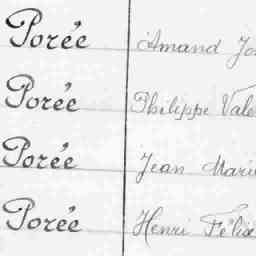 Porée Amand Jos
Porée Philippe Vale
Porée Jean Marie
Porée Henri Félix